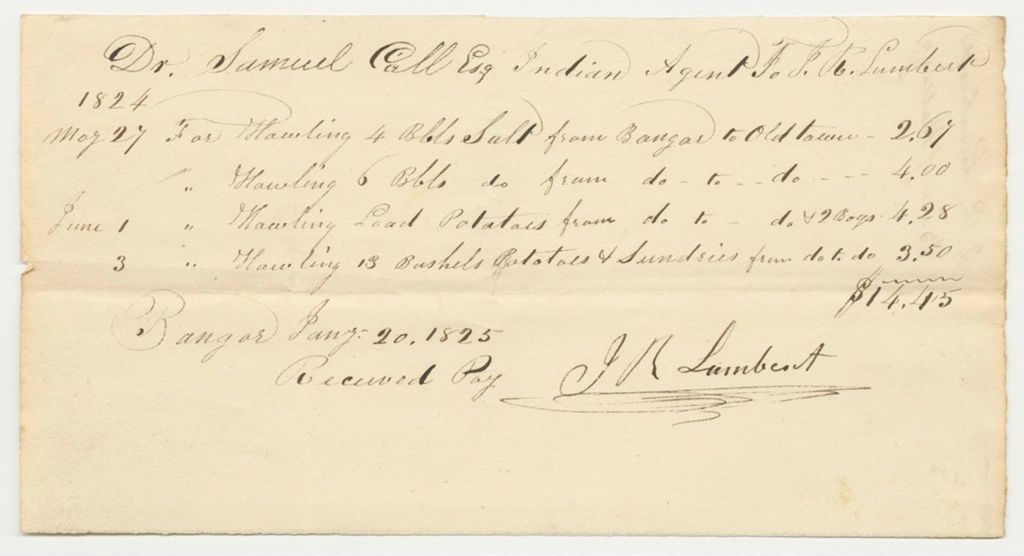 Dr. Samuel Call Esq Indian Agent To J. R. Lumbert
1824
May 27 For Hawling 4 Bbls Salt from Bangor to Oldtown - 2.67
" Hawling 6 Bbls do from do - to - - do - - - 4.00
June 1 " Hawling Load Potatoes from do to - do & 2 Boys 4.28
3 " Hawling 18 Bushels Potatoes & Sundries from do to do 3.50
$14.45
Bangor Jany. 20, 1825
Received Pay J R Lumbert